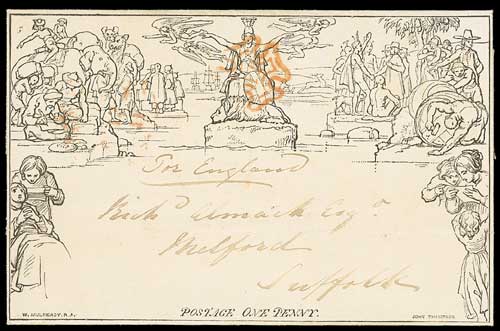 For England
Rich^d Almack Esq^r.
Melford
Suffolk
POSTAGE ONE PENNY.
W. MULREADY. R.A.
JOHN THOMPSON